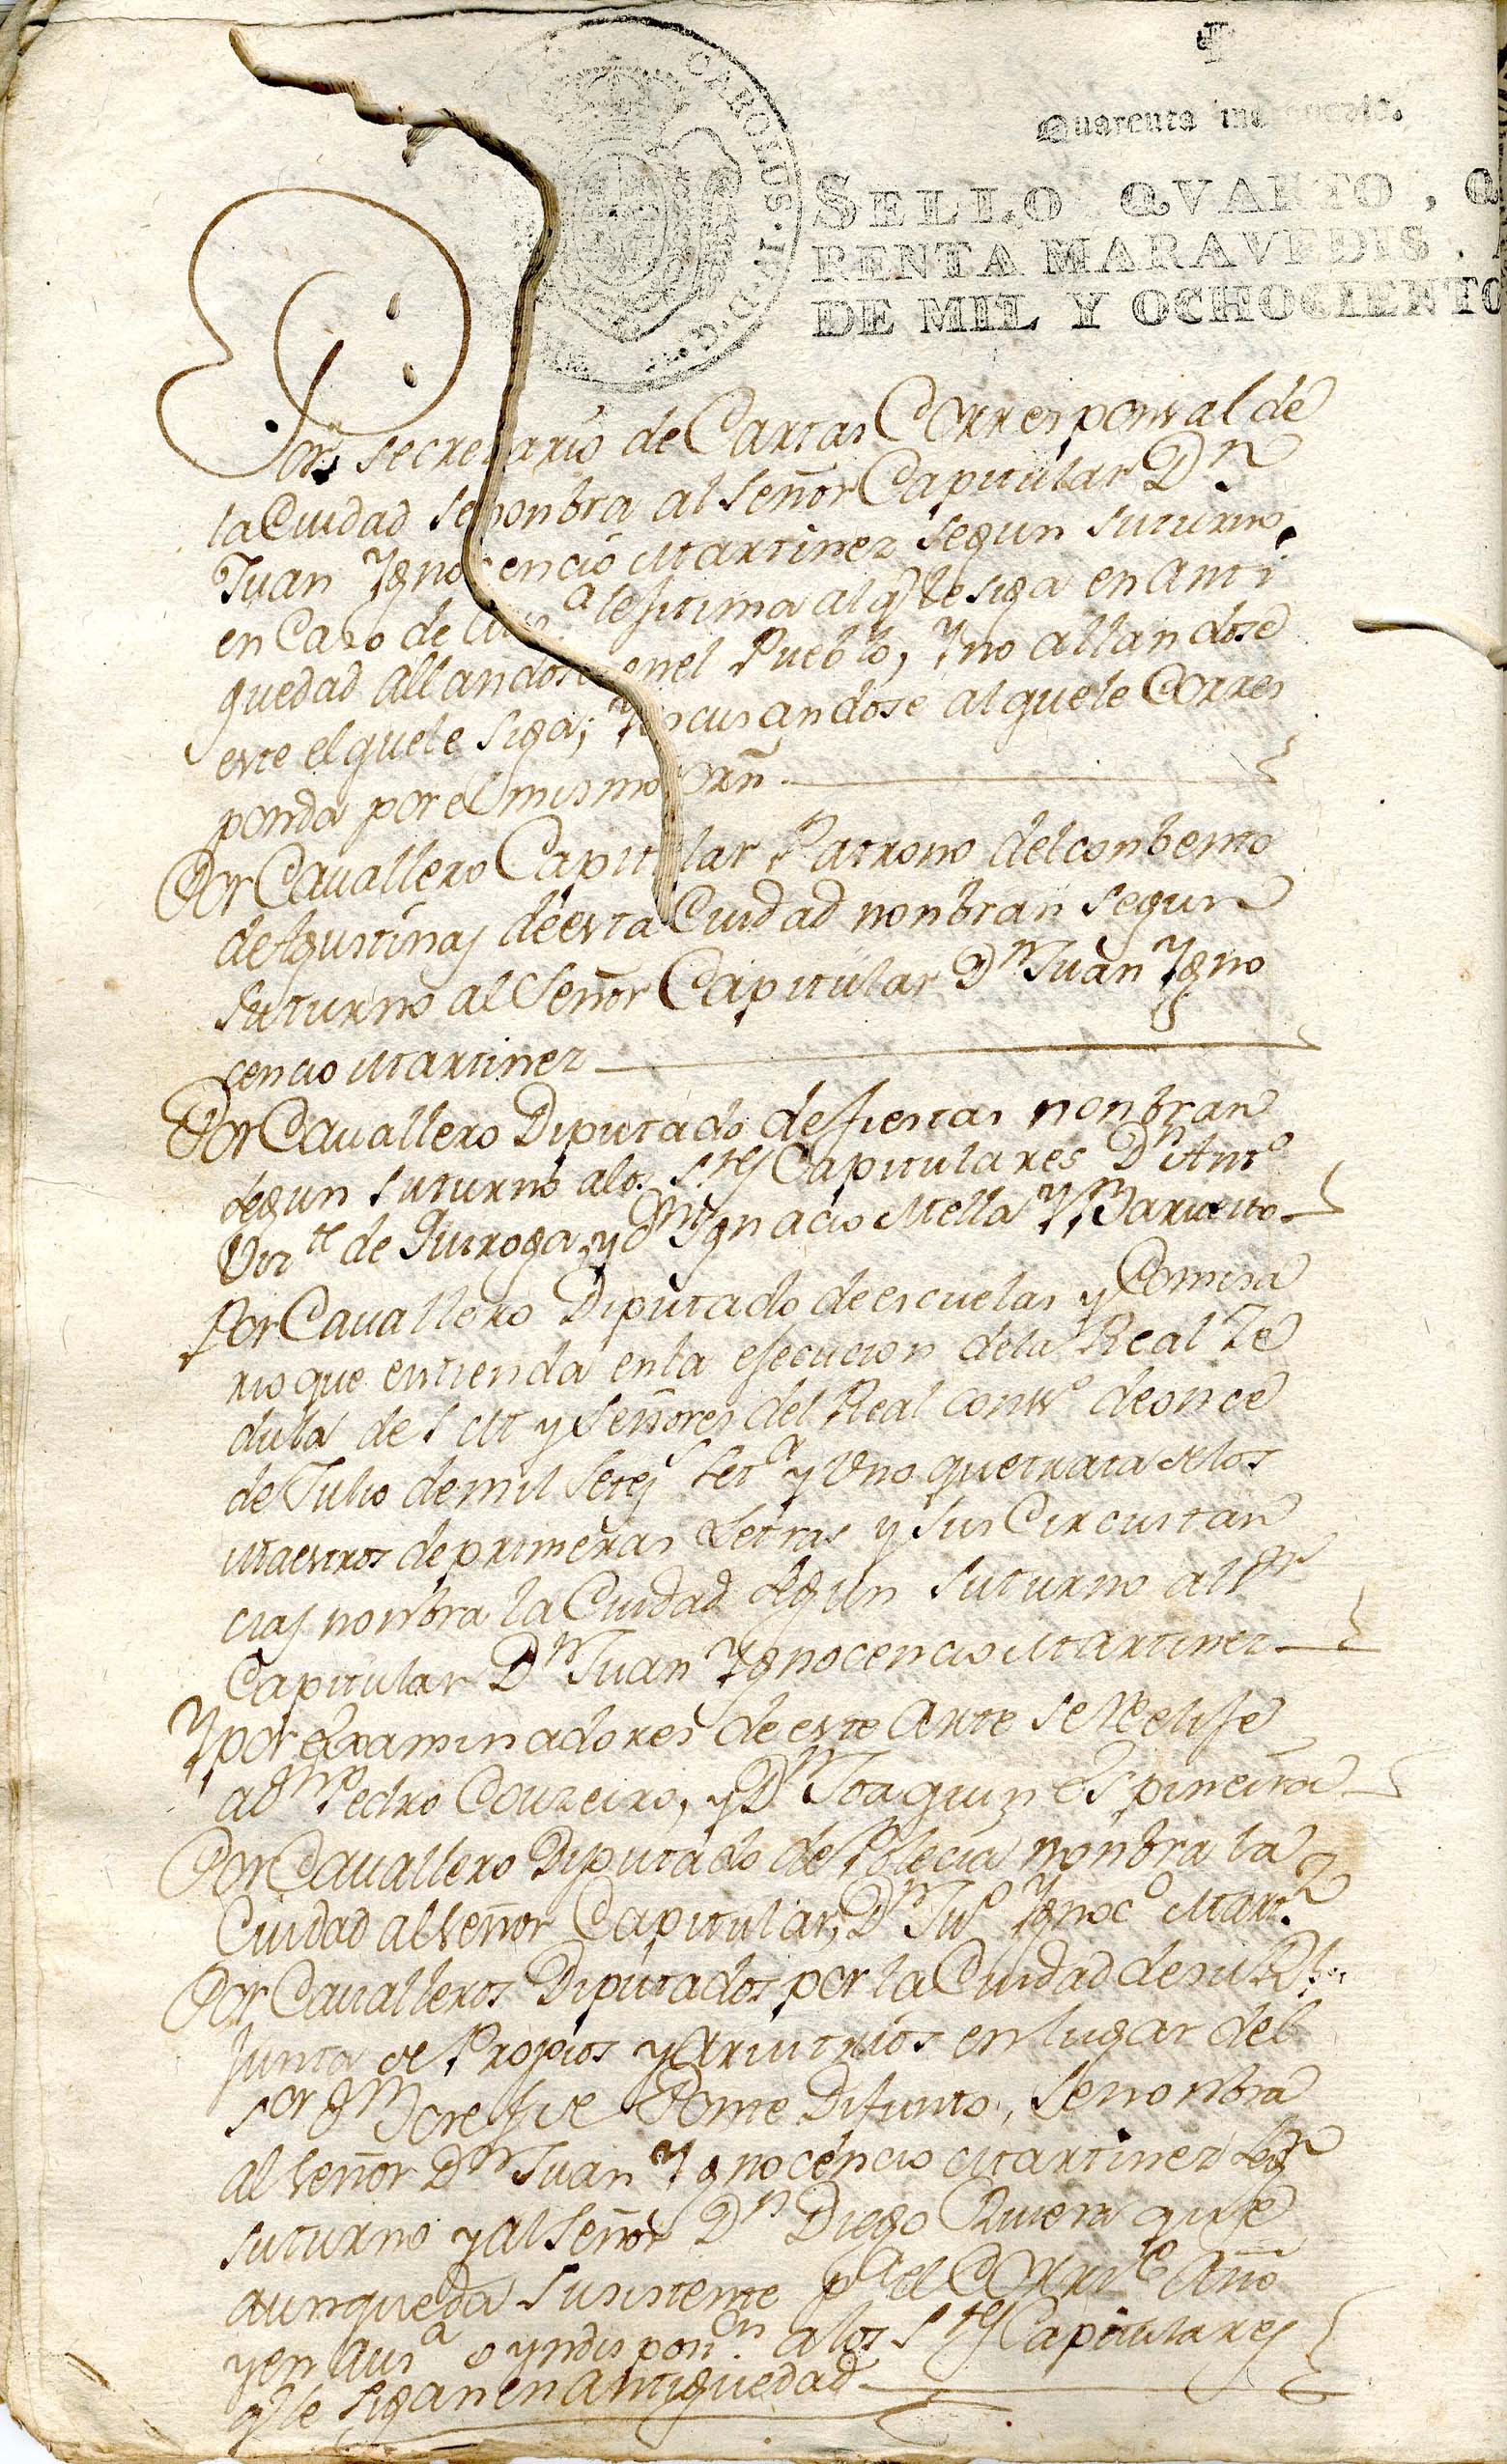 Quarenta
CAROLUS IV D G
SELLO QVARTO, Q
RENTA MARAVEDIS. A
DE MIL Y OCHOCIENTO
Por secretario de Cartas Corresponsal de
la Ciudad se nonbra al Señor Capitular Dn
Juan Ygnocencio Martinez segun su turno,
en Caso de aus.a lejitima al q.e le siga en anti
guedad allandose en el Pueblo, Y no allandose
este el que le siga; Y escusandose al que le Corres
ponda por el mismo orn.
Por Cavallero Capitular Patrono del conbento
de Agustinas de esta Ciudad nonbran segun
su turno al Señor Capitular Dn Juan Ygno
cencio Martinez
Por Cavallero Diputado de fiestas nonbran
segun su turno a los S.res Capitulares Dn Anto
Viz.te de Quiroga, y Dn Ygnacio Mella Y
Por Cavallero Diputado de escuelas y Comisa
rio que entienda en la ejecucion de la Real Ze
dula de S M y Señores del Real cons.o de once
de Julio de mil setes set.a y Uno que trata de los
Maestros de primeras Letras y sus Circustan
cias nonbra la Ciudad segun su turno al Sr
Capitular Dn Juan Ygnocencio Martinez
Y por examinadores de este Arte se Reelije
a Dn Pedro Couzeiro, y Dn Joaquin Espiñeira
Por Cavallero Diputado de Policia nonbra la
Ciudad al señor Capitular, Dn Jno Ygnoco Martz
Por Cavalleros Diputados por la Ciudad de su Rl
Junta de Propios y Arvitrios en lugar del
Sor Dn Josef de Ponte Difunto, se nonbra
al señor Dn Juan Ygnocencio Martinez seg.n
su turno y al Señor Dn Diego que
aun queda susistente p.a el Corr.te Año
y en aus.a o yndispon.cn a los S.res Capitulares
q.e le sigan en antiguedad